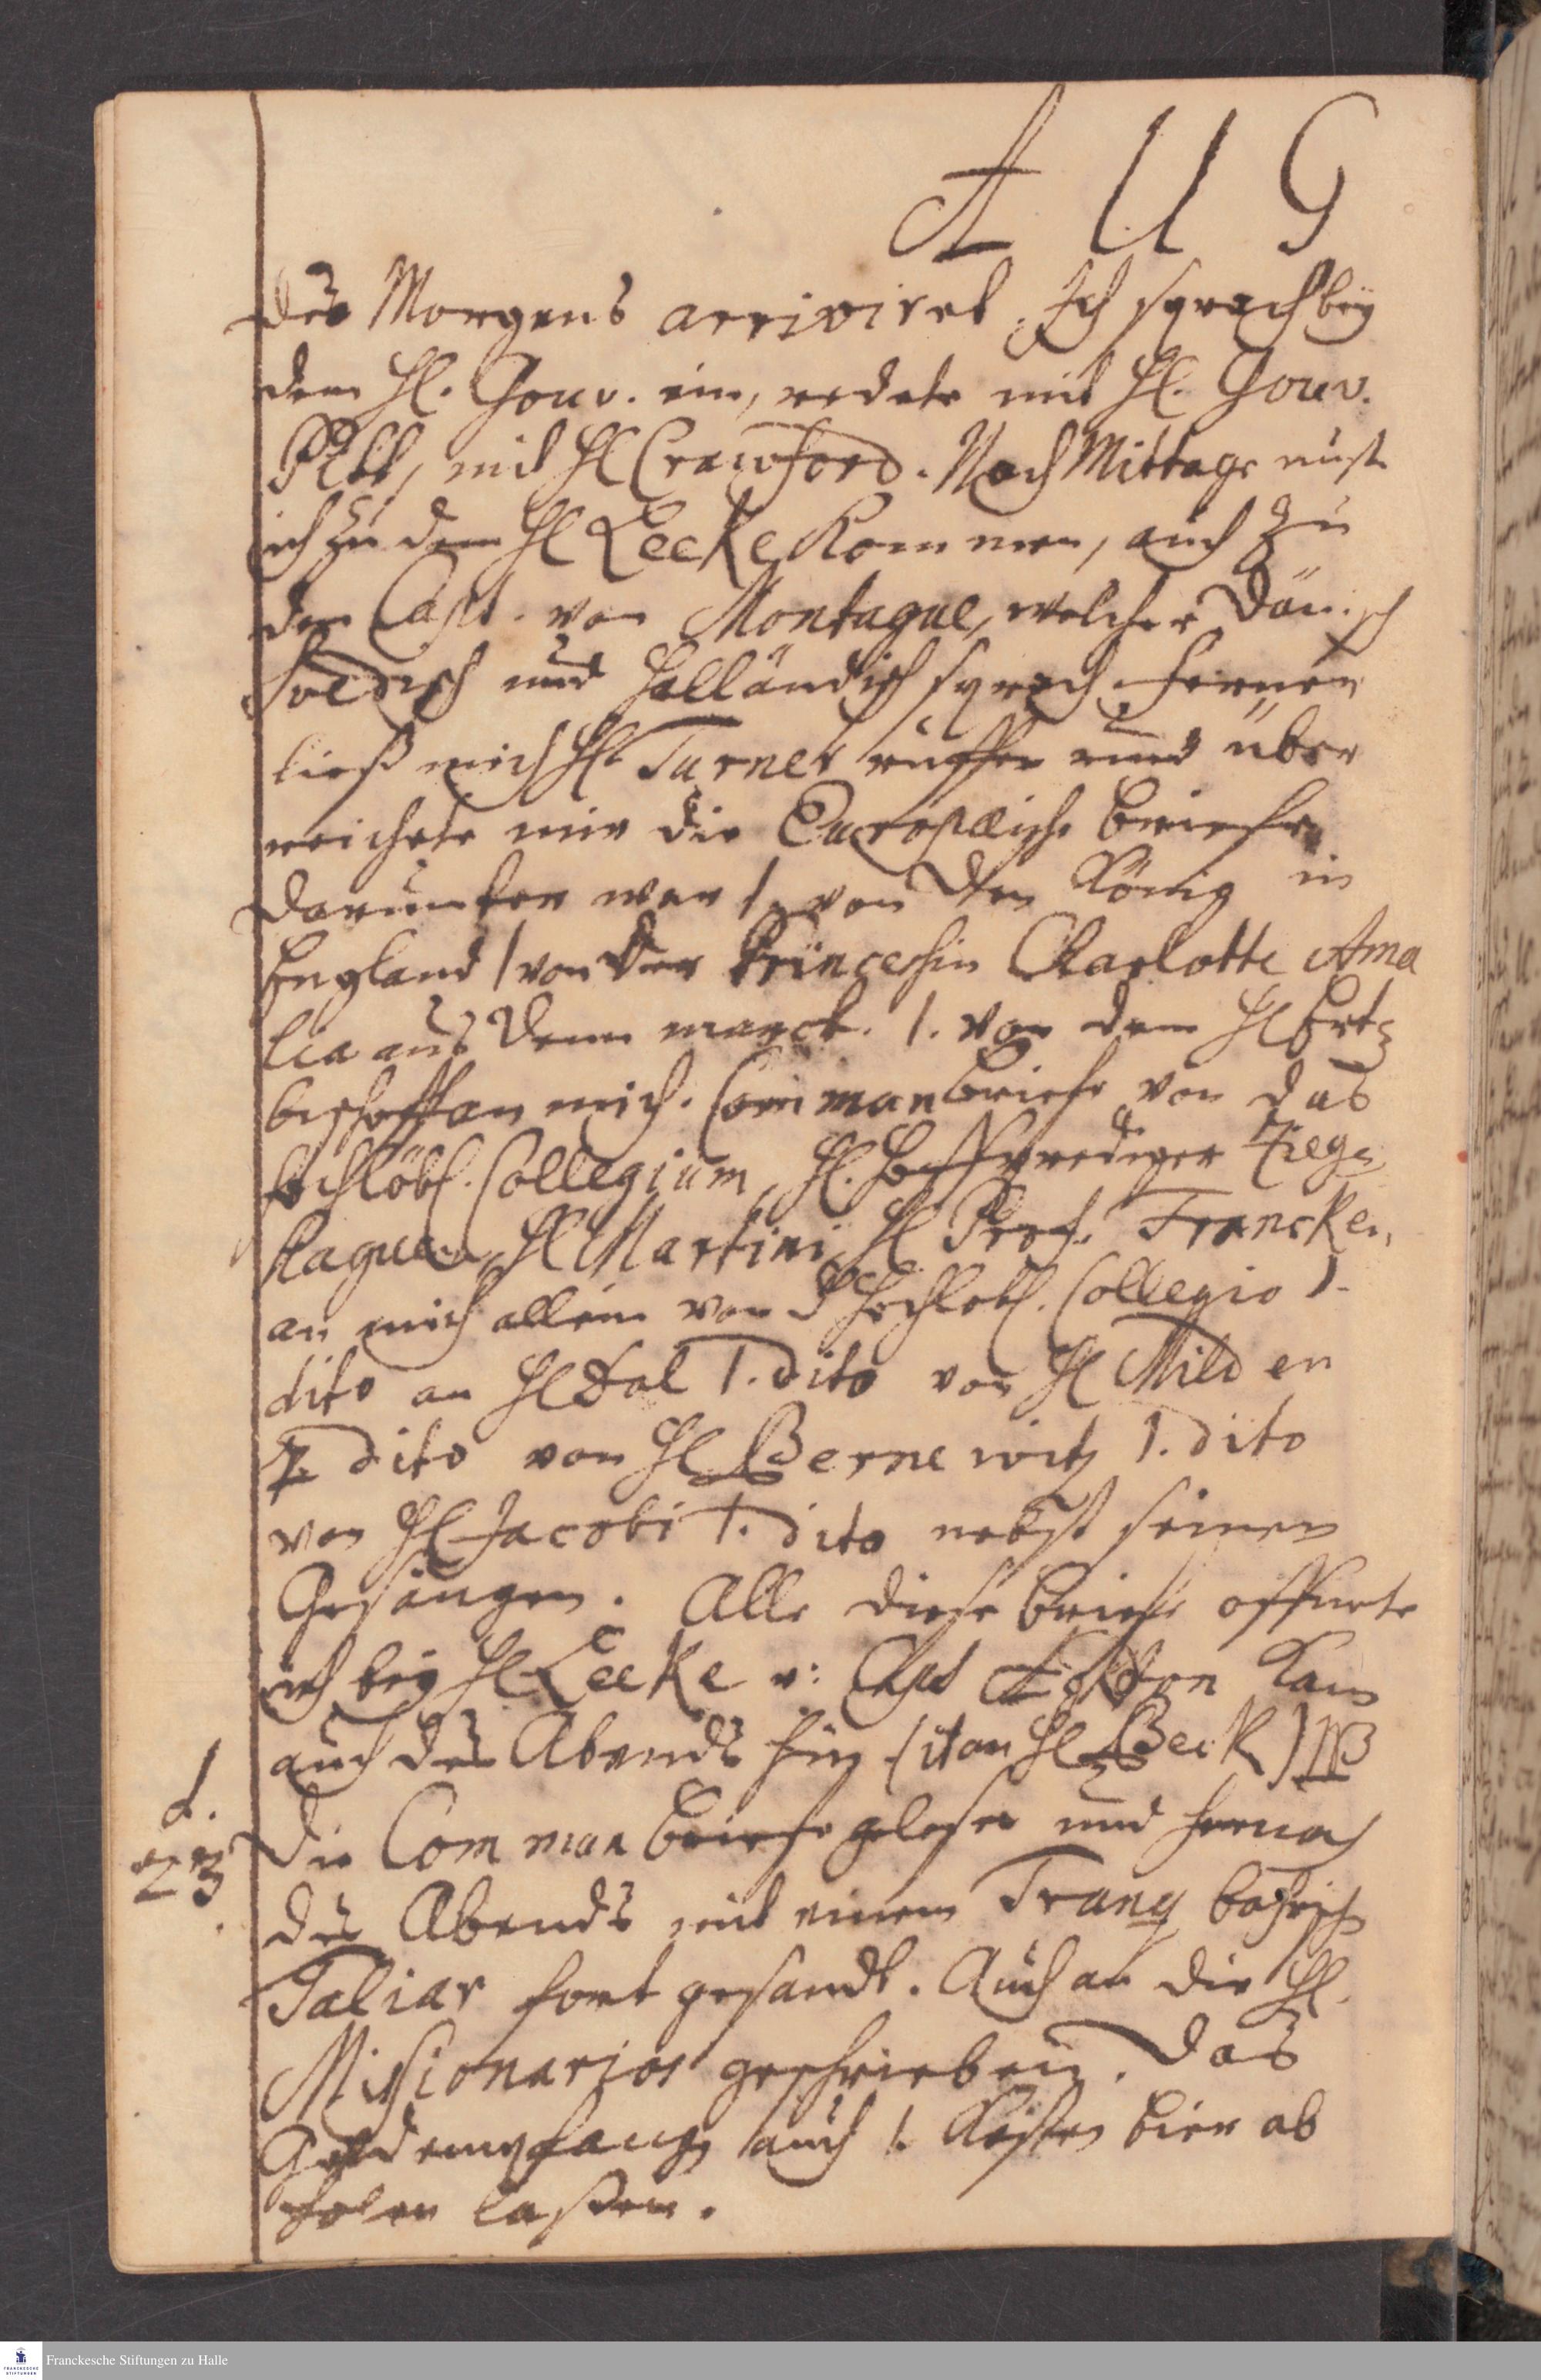 A U G
des Morgens arriviret. Ich sprach bey
dem H. Gouv. ein, redete mit H. Gouv.
Pitt, mit H Crawford. Nach Mittags must
ich zu dem H Leeke Kommen, auch zu
den Capt. von Montague, welcher Dänisch
Svedisch und Holländisch sprach. Ferner
ließ mich H Turner ruffen und über
reichete mir die Europæische Briefe
darunter war 1. von den König in
England 1 von der Princeßin Charlotte Ama
lia aus Denn marck. 1. von dem H Ertz
bischoff an mich. Com̄un briefe von das
hochlöbl. Collegium, H. Hoffprediger Ziegen
hagen, H Martini, H Prof. Francken,
an mich allein von d hochlobl. Collegio 1.
dito an H Dal 1. dito von H Milden
7. dito von H Bernewitz 1. dito
von H Jacobi 1. dito nebst seinen
Gesängen. Alle diese briefe öffnete
ich bey H Leeke u: Capt kam
auch des Abends hin (it an H Beck)
d.
23
die Commun briefe gelesen und hernach
des Abends mit einem Tranq bahrisch
Taliar fort gesandt. Auch an die H.
Missionarios geschrieben. Das
Geld empfang auch 1. Kisten bier ab
holen laßen.
Franckesche Stiftungen zu Halle